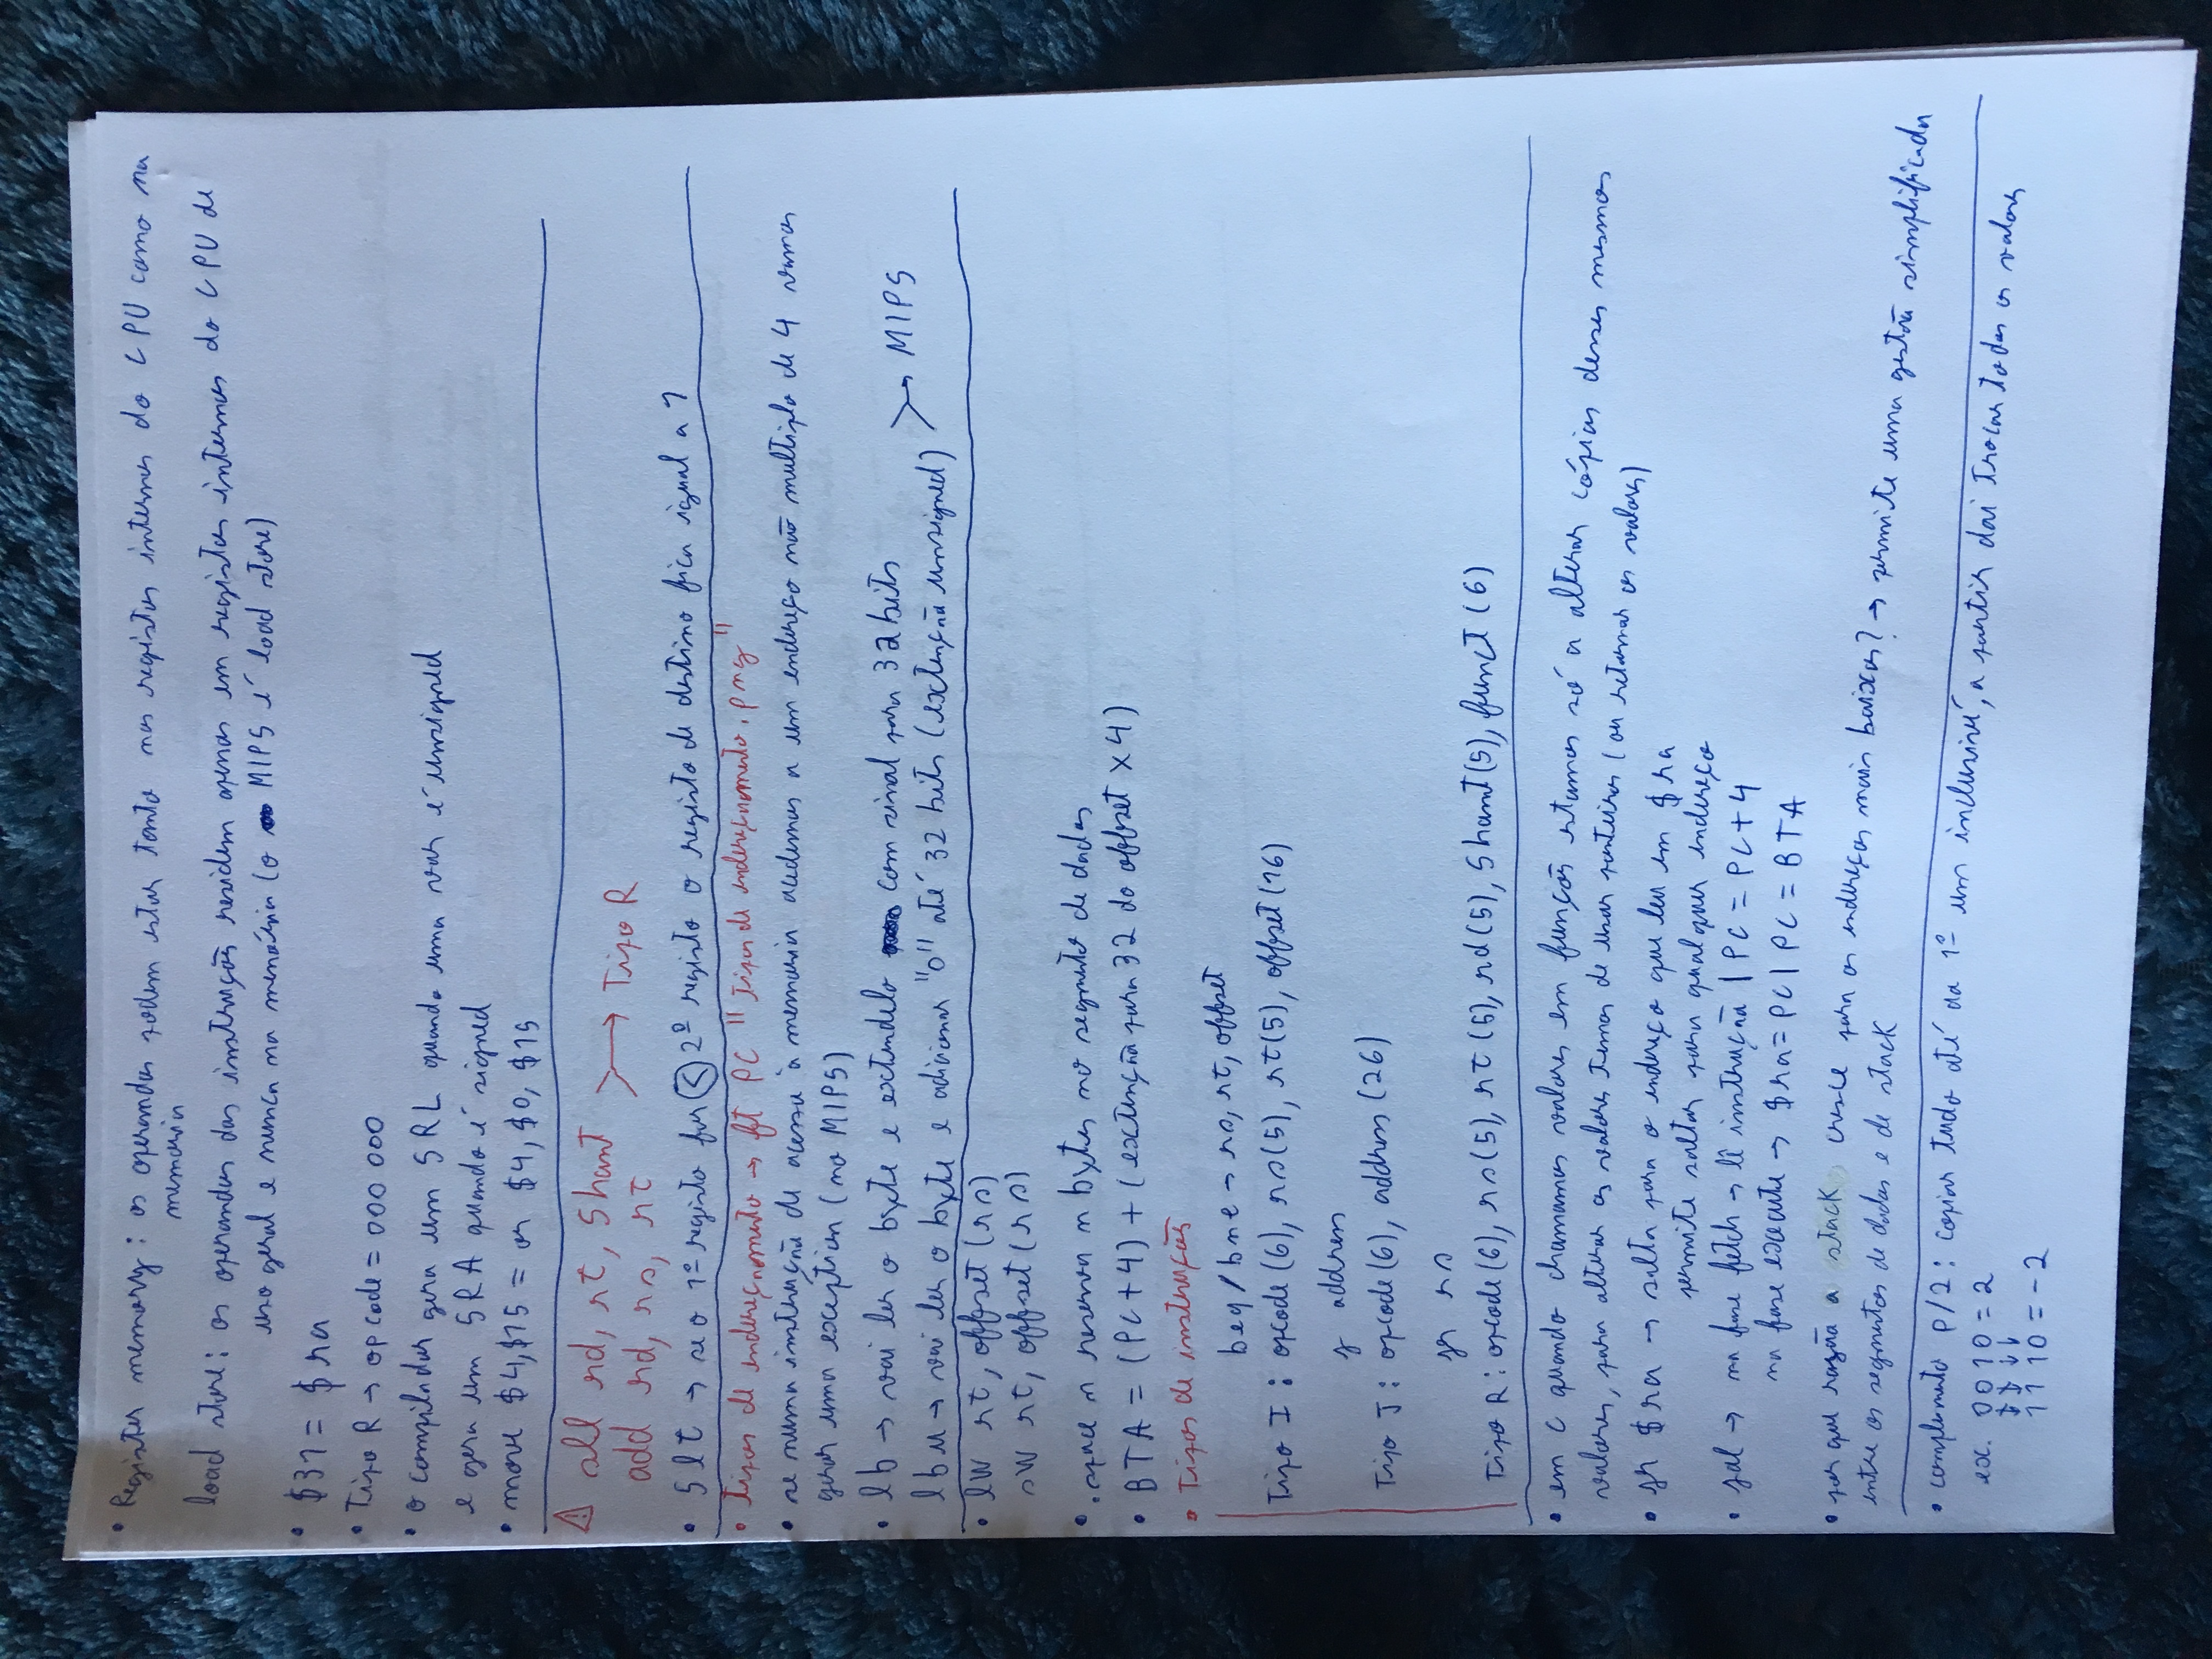 • Register memory: os operandos podem estar tanto nos registos internos do CPU como na
memoria
load store: os operandos das instruções residem apenas em registos internos do CPU de
uso geral e nunca na memória (o MIPS é load store)
• $31 = $ra
• Tipo R → opcode = 000 000
• o compilador gera um SRL quando uma var é unsigned
e gera um SRA quando é signed
• move $4,$15 = or $4, $0, $15
⚠ sll rd, rt, Shamt
add rd, rs, rt
→ Tipo R
• Slt → se o 1º registo for < 2º registo o registo de destino fica igual a 1
• tipos de endereçamento → ft PC "Tipos de endereçamento.png"
• se numa instrução de acesso à memoria acedemos a um endereço não multiplo de 4 vamos
gerar uma exception (no MIPS)
• lb → vai ler o byte e extendelo com sinal para 32 bits
lbu → vai ler o byte e adicionar "0" até 32 bits (extenção unsigned)
→ MIPS
• lW rt, offset(rs)
sW rt, offset(rs)
• .space n reserva n bytes no segmento de dados
• BTA = (PC+4) + (extenção para 32 do offset x 4)
• Tipos de instruções
beq/bne → rs, rt, offset
Tipo I: opcode(6), rs(5), rt(5), offset(16)
j address
Tipo J: opcode(6), address(26)
jr rs
Tipo R: opcode(6), rs(5), rt(5), rd(5), Shamt(5), funct(6)
• em C quando chamamos valores em funções estamos só a alterar cópias desses mesmos
valores, para alterar os valores temos de usar ponteiros (ou retornar os valores)
• jr $ra → salta para o endereço que leu em $ra
permite saltar para qualquer endereço
• jal → na fase fetch → lê instrução | PC = PC+4
na fase execute → $ra = PC | PC = BTA
• por que razão a stack cresce para os endereços mais baixos? → permite uma gestão simplificada
entre os segmentos de dados e de stack
• complemento p/2: copiar tudo até ao 1º um inclusivé, a partir dai trocar todos os valores
ex. 0010 = 2
↓↓↓↓
1110 = -2